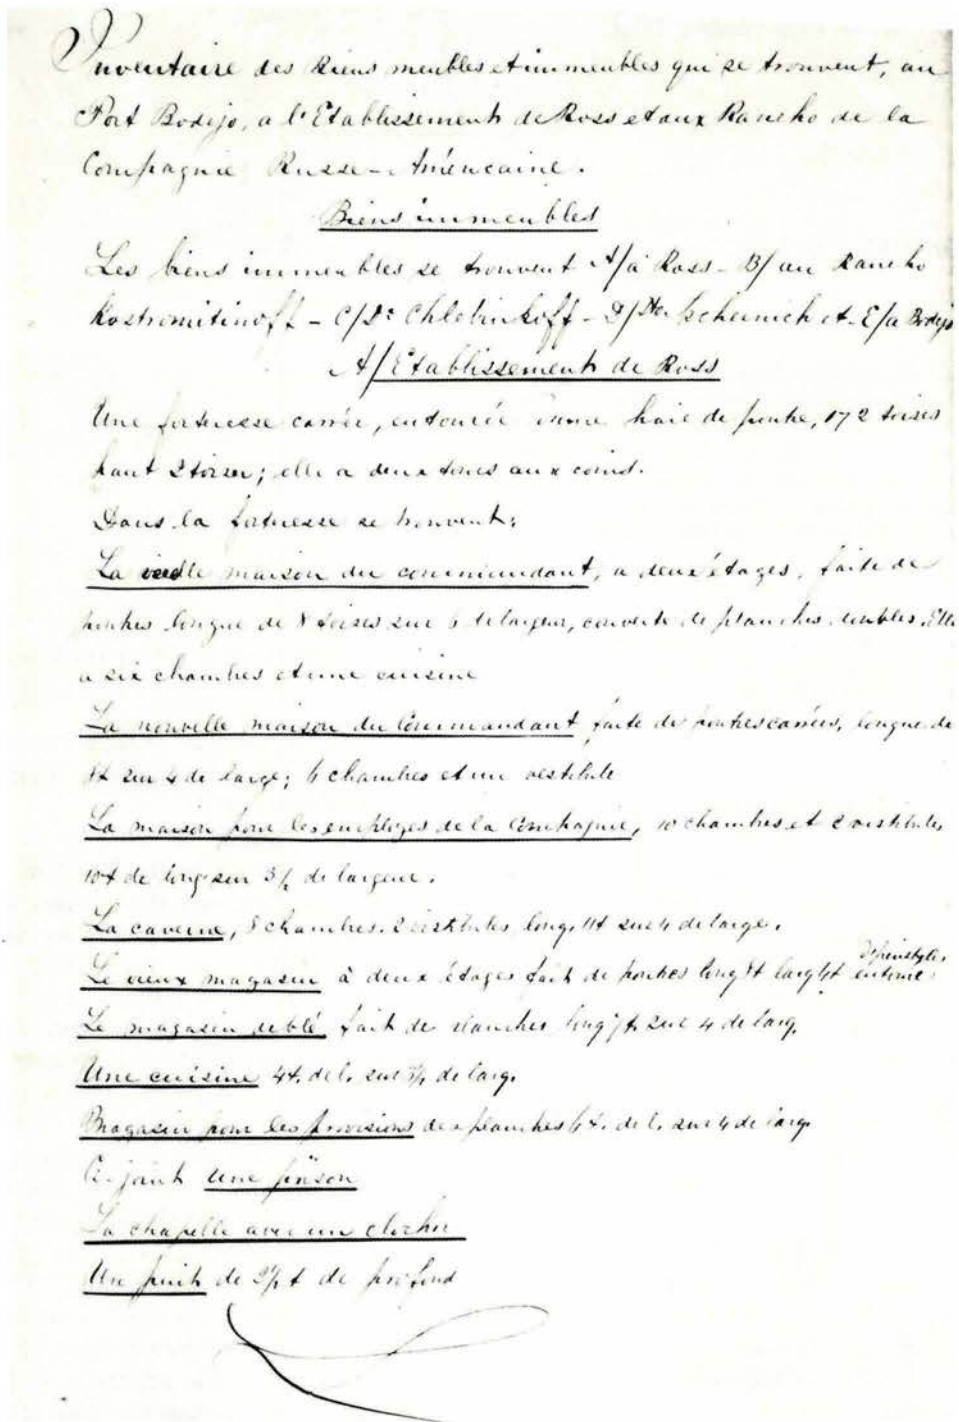 Inventaire des Biens meubles et immeubles qui se trouvent, au
Port Bodejo, a l'Etablissement de Ross et aux Rancho de la
Compagnie Russe-Américaine.
Biens immeubles
Les biens immeubles se trouvent A/à Ross - B/ au Rancho
Kostromitinoff - C/Do Chlebinkoff - D/Do Tschernich et - E/a Bodejo
A/Etablissement de Ross
Une forteresse carrée, entourée d'une haie de poutre, 172 toises
haut 2 toises; elle a deux tours aux coins.
Dans la forteresse se trouvent:
La vieille maison du commandant, a deux étages, faite de
poutres longue de 8 toises sur 6 de largeur, couverte de planches doubles. Elle
a six chambres et une cuisine
La nouvelle maison du Commandant faite de poutres carrées, longue de
8t sur 4 de large; 6 chambres et un vestibule
La maison pour les employes de la Compagnie, 10 chambres et 2 vestibules
10t de long sur 3½ de largeur.
La caverne, 8 chambres. 2 vestibules long. 11t sur 4 de large.
Le vieux magasin à deux étages fait de poutres long 8t larg 4t entouré
de péristyles
Le magasin de blé fait de planches long 7t. sur 4 de larg.
Une cuisine 4t. de l. sur 3½ de larg.
Magasin pour les provisions de planches 6t. de l. sur 4 de larg
Ci-joint une prison
La chapelle avec un clocher
Un puit de 2½ t de profond